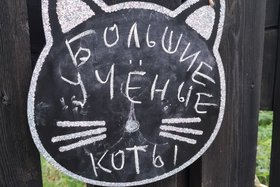 БОЛЬШИЕ
УЧЁНЫЕ
КОТЫ